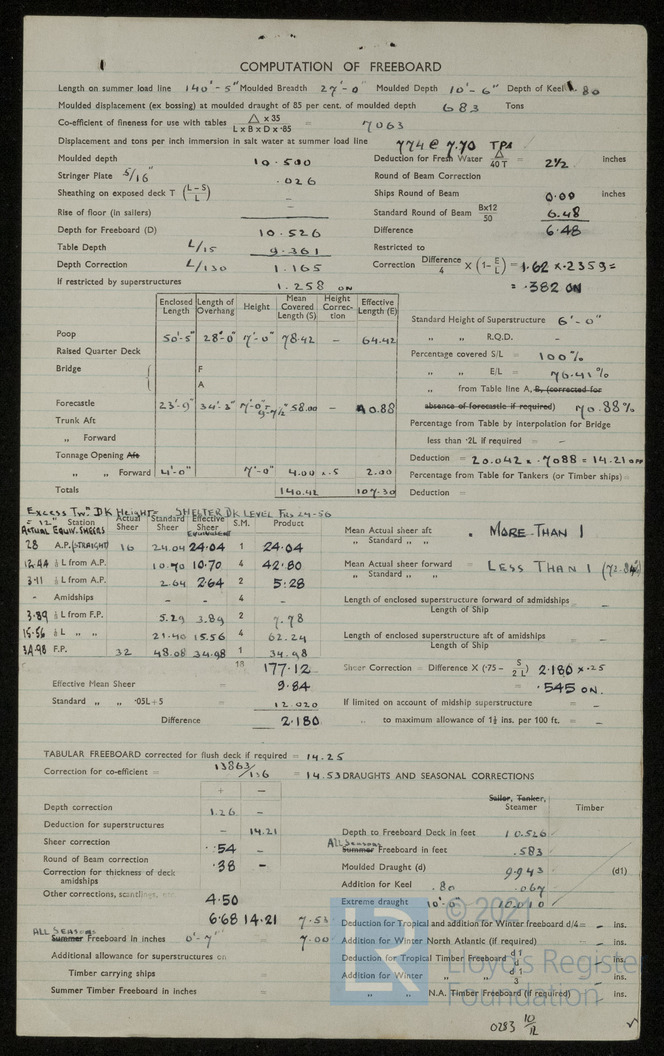 COMPUTATION OF FREEBOARD
Length on summer load line 140'-5" Moulded Breadth 27'-0" Moulded Depth 10'-6" Depth of Keel .80
Moulded displacement (ex bossing) at moulded draught of 85 per cent. of moulded depth 683 Tons
Co-efficient of fineness for use with tables △ x 35 / L x B x D x ·85 = .7063
Displacement and tons per inch immersion in salt water at summer load line 774 @ 7.70 TPI
Moulded depth 10.500 Deduction for Fresh Water △/40T = 2½ inches
Stringer Plate 5/16" .026 Round of Beam Correction
Sheathing on exposed deck T (L–S/L) – Ships Round of Beam 0.00 inches
Rise of floor (in sailers) Standard Round of Beam Bx12/50 6.48
Depth for Freeboard (D) 10.526 Difference 6.48
Table Depth L/15 9.361 Restricted to
Depth Correction L/130 1.165 Correction Difference/4 x (1–E/L) = 1.62 x .2359 =
If restricted by superstructures 1.258 ON = .382 ON
Enclosed Length Length of Overhang Height Mean Covered Length (S) Height Correc-tion Effective Length (E)
Standard Height of Superstructure 6'-0"
Poop 50'-5" 28'-0" 7'-0" 78.42 – 64.42 " " R.Q.D. -
Raised Quarter Deck Percentage covered S/L = 100%
Bridge F " " E/L = 76.41%
A " from Table line A, B, (corrected for
Forecastle 23'-9" 34'-3" 7'-0" 58.00 – 40.88 absence of forecastle if required) 70.88%
Trunk Aft Percentage from Table by interpolation for Bridge
" Forward less than ·2L if required = –
Tonnage Opening Aft Deduction = 20.042 x .7088 = 14.21 OFF
" " Forward 4'-0" 7'-0" 4.00 x .5 2.00 Percentage from Table for Tankers (or Timber ships) =
Totals 140.42 107.30 Deduction =
Excess Tw. DK Height = 12" SHELTER DK LEVEL
ACTUAL EQUIV. SHEERS Station Actual Sheer Standard Sheer Effective Sheer EQUIVALENT S.M. Product
28 A.P. (STRAIGHT) 16 24.04 24.04 1 24.04 Mean Actual sheer aft / " Standard " " = MORE THAN 1
12.44 ⅙ L from A.P. 10.70 10.70 4 42.80 Mean Actual sheer forward / " Standard " " = LESS THAN 1
3.11 ⅓ L from A.P. 2.64 2.64 2 5.28
- Amidships - - 4 - Length of enclosed superstructure forward of amidships / Length of Ship =
3.89 ⅓ L from F.P. 5.29 3.89 2 7.78
15.56 ⅙ L " " 21.40 15.56 4 62.24 Length of enclosed superstructure aft of amidships / Length of Ship =
34.98 F.P. 32 48.08 34.98 1 34.98
18 177.12 Sheer Correction = Difference X (·75 – S/2L) 2.180 x .25
Effective Mean Sheer = 9.84 = .545 ON.
Standard " " ·05L+5 12.020 If limited on account of midship superstructure = –
Difference 2.180 " to maximum allowance of 1½ ins. per 100 ft. = –
TABULAR FREEBOARD corrected for flush deck if required = 14.25
Correction for co-efficient = 13863/136 = 14.53 DRAUGHTS AND SEASONAL CORRECTIONS
+ –
Sailer, Tanker, Steamer Timber
Depth correction 1.26 –
Deduction for superstructures – 14.21 Depth to Freeboard Deck in feet 10.526
Sheer correction .54 – ALL SEASONS Summer Freeboard in feet .583
Round of Beam correction .38 – Moulded Draught (d) 9.943 (d1)
Correction for thickness of deck amidships Addition for Keel .80 .067
Other corrections, scantlings, etc. 4.50 Extreme draught 10'-0" 10.010
6.68 14.21 7.53 Deduction for Tropical and addition for Winter freeboard d/4 = – ins.
ALL SEASONS Summer Freeboard in inches 0'-7" 7.00 Addition for Winter North Atlantic (if required) = – ins.
Additional allowance for superstructures on Deduction for Tropical Timber Freeboard d1/4 = – ins.
Timber carrying ships = Addition for Winter " " d1/3 = – ins.
Summer Timber Freeboard in inches = " " N.A. Timber Freeboard (if required) = – ins.
© 2021
LR Lloyd's Register Foundation
0283 10/12